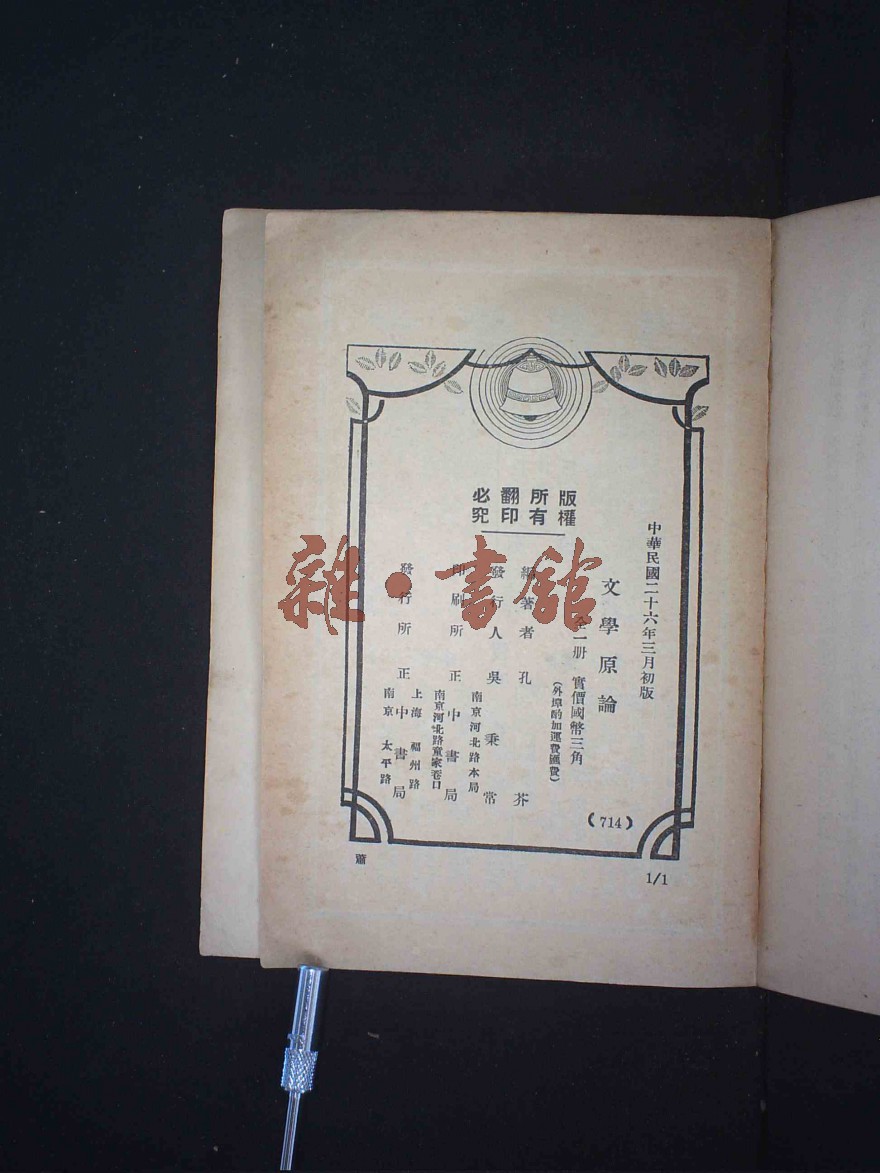 中華民國二十六年三月初版
文學原論
全一册 實價國幣三角
(外埠酌加運費匯費)
版權所有
翻印必究
編著者 孔芥
發行人 吳秉常
南京河北路本局
印刷所 正中書局
南京河北路童家巷口
發行所 正中書局
上海 福州路
南京 太平路
(714)
蕭
1/1
雜·書館